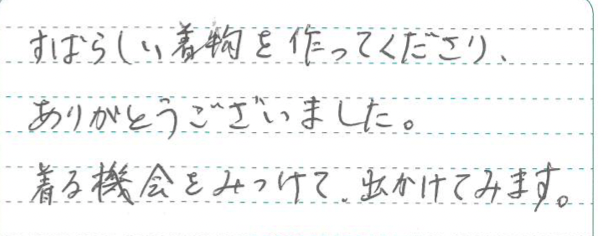 すばらしい着物を作ってくださり、
ありがとうございました。
着る機会をみつけて、出かけてみます。